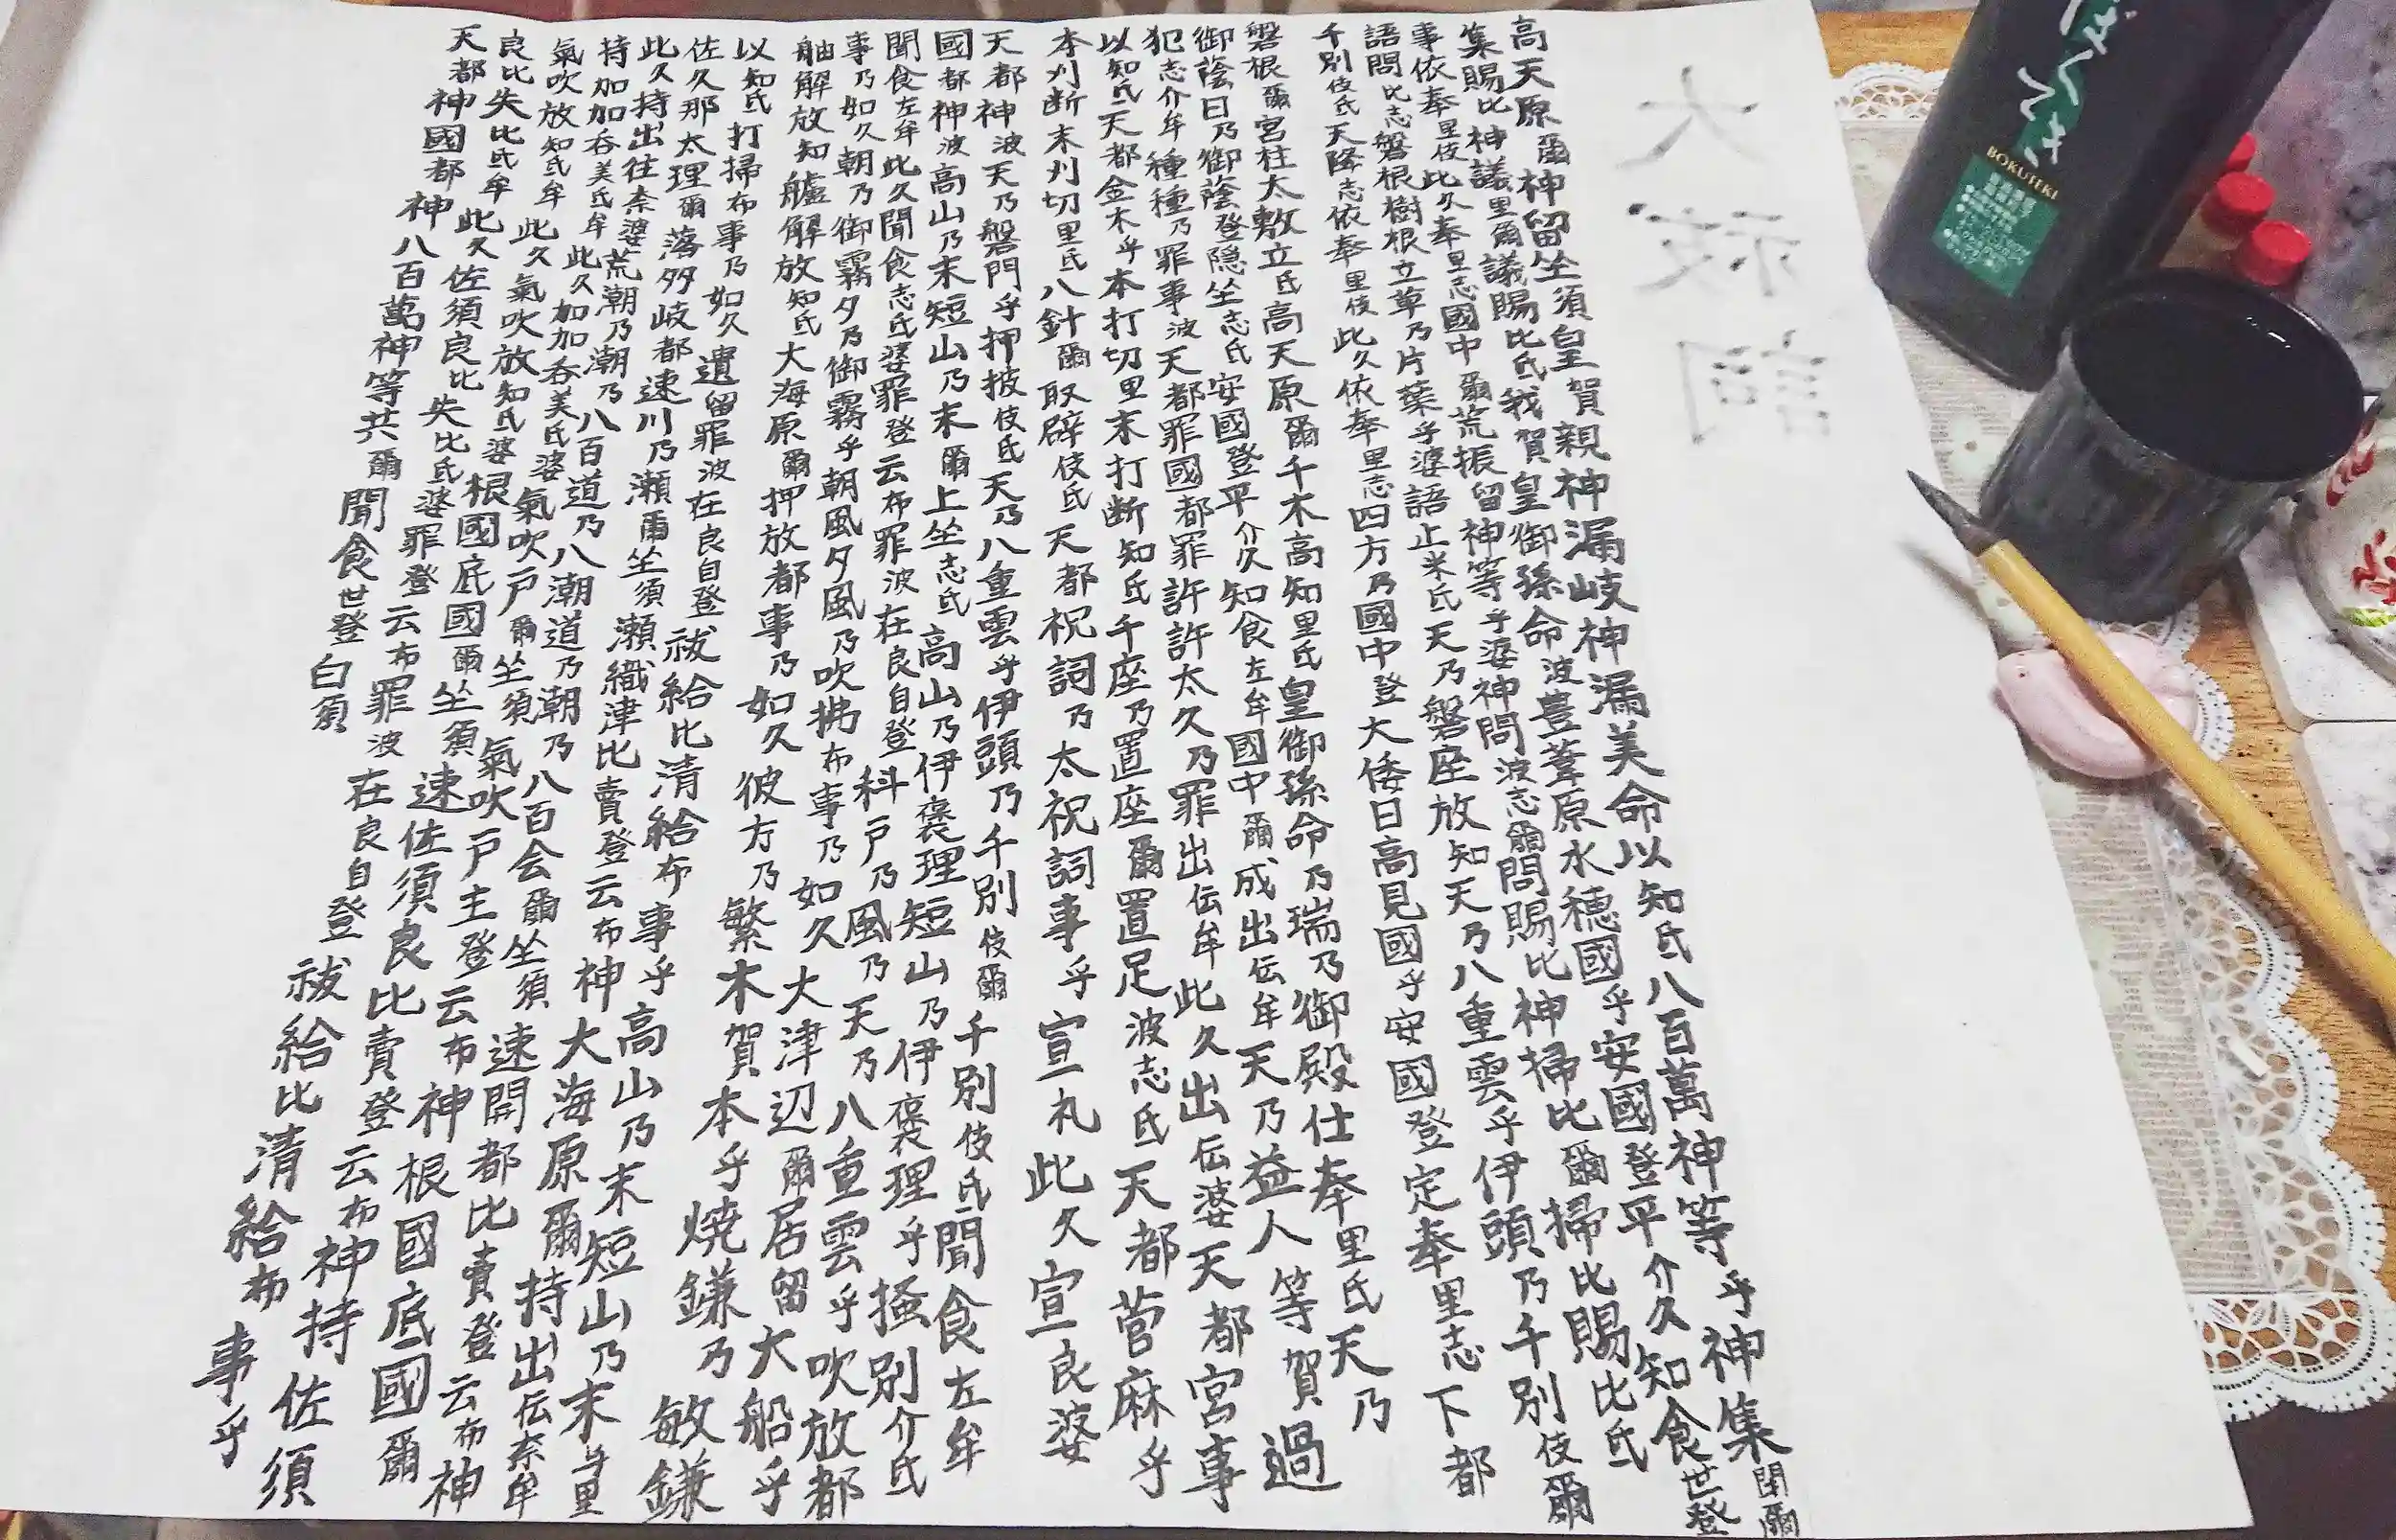 大祓詞
高天原爾神留坐須皇賀親神漏岐神漏美命以知氐八百萬神等乎神集閇爾
集賜比神議里爾議賜比氐我賀皇御孫命波豊葦原水穂國乎安國登平介久知食世登
事依奉里伎此久奉里志國中爾荒振留神等乎婆神問波志爾問賜比神掃比爾掃比賜比氐
語問比志磐根樹根立草乃片葉乎婆語止米氐天乃磐座放知天乃八重雲乎伊頭乃千別伎爾
千別伎氐天降志依奉里伎此久依奉里志四方乃國中登大倭日高見國乎安國登定奉里志下都
磐根爾宮柱太敷立氐高天原爾千木高知里氐皇御孫命乃瑞乃御殿仕奉里氐天乃
御蔭日乃御蔭登隠坐志氐安國登平介久知食左牟國中爾成出伝牟天乃益人等賀過
犯志介牟種種乃罪事波天都罪國都罪許許太久乃罪出伝牟此久出伝婆天都宮事
以知氐天都金木乎本打切里末打断知氐千座乃置座爾置足波志氐天都菅麻乎
本刈断末刈切里氐八針爾取辟伎氐天都祝詞乃太祝詞事乎宣礼此久宣良婆
天都神波天乃磐門乎押披伎氐天乃八重雲乎伊頭乃千別伎爾千別伎氐聞食左牟
國都神波高山乃末短山乃末爾上坐志氐高山乃伊褒理短山乃伊褒理乎掻別介氐
聞食左牟此久聞食志氐婆罪登云布罪波在良自登科戸乃風乃天乃八重雲乎吹放都
事乃如久朝乃御霧夕乃御霧乎朝風夕風乃吹拂布事乃如久大津辺爾居留大船乎
舳解放知艫解放知氐大海原爾押放都事乃如久彼方乃繁木賀本乎焼鎌乃敏鎌
以知氐打掃布事乃如久遺留罪波在良自登祓給比清給布事乎高山乃末短山乃末与里
佐久那太理爾落多岐都速川乃瀬爾坐須瀬織津比賣登云布神大海原爾持出伝奈牟
此久持出往奈婆荒潮乃潮乃八百道乃八潮道乃潮乃八百会爾坐須速開都比賣登云布神
持加加呑美氐牟此久加加呑美氐婆氣吹戸爾坐須氣吹戸主登云布神根國底國爾
氣吹放知氐牟此久氣吹放知氐婆根國底國爾坐須速佐須良比賣登云布神持佐須
良比失比氐牟此久佐須良比失比氐婆罪登云布罪波在良自登祓給比清給布事乎
天都神國都神八百萬神等共爾聞食世登白須
BOKUTEKI